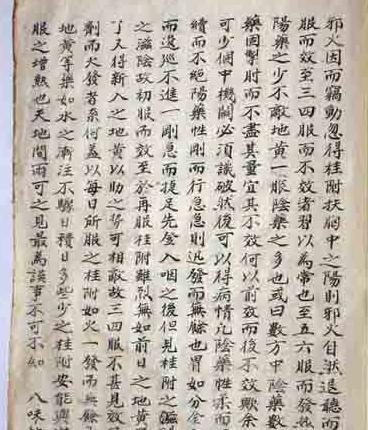 邪火因而竊動忽得桂附扶胸中之陽則邪火自然退聽而
服而效至三四服而不效者習以為常也至五六服而發熱
陽藥之少不敵地黃一服陰藥之多也或曰數方中陰藥數
藥固掣肘而不盡其量宜其不效何以前效而後不效歟余
可少個中機關必須識破然後可以得病情凡陰藥性柔而
續而不絕陽藥性剛而行急急則迅發而無餘也冑如分金
而退巡不進一剛急而捷足先登入咽之後但見桂附之
之滋陰故初服而效至於再服桂附雖烈無如前日之地黃
了又得新入之地黃以助之勢可相敵故三四服不甚見效
劑而火發者系何蓋以每日所服之桂附如火一發而無餘
地黃等藥如水之漸注不驟日積日多些少之桂附安能與
服之增熱也天地間兩可之見最為誤事不可不知 八味